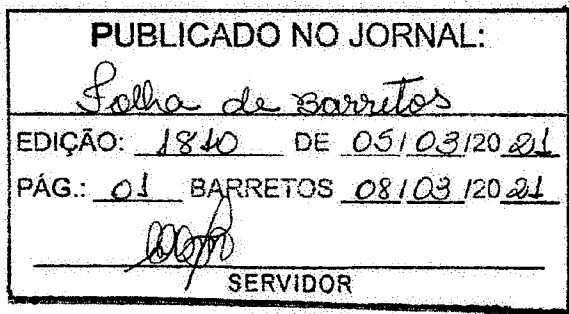 PUBLICADO NO JORNAL:
Folha de Barretos
EDIÇÃO: 1810 DE 05/03/2021
PÁG.: 01 BARRETOS 08/03/2021
SERVIDOR